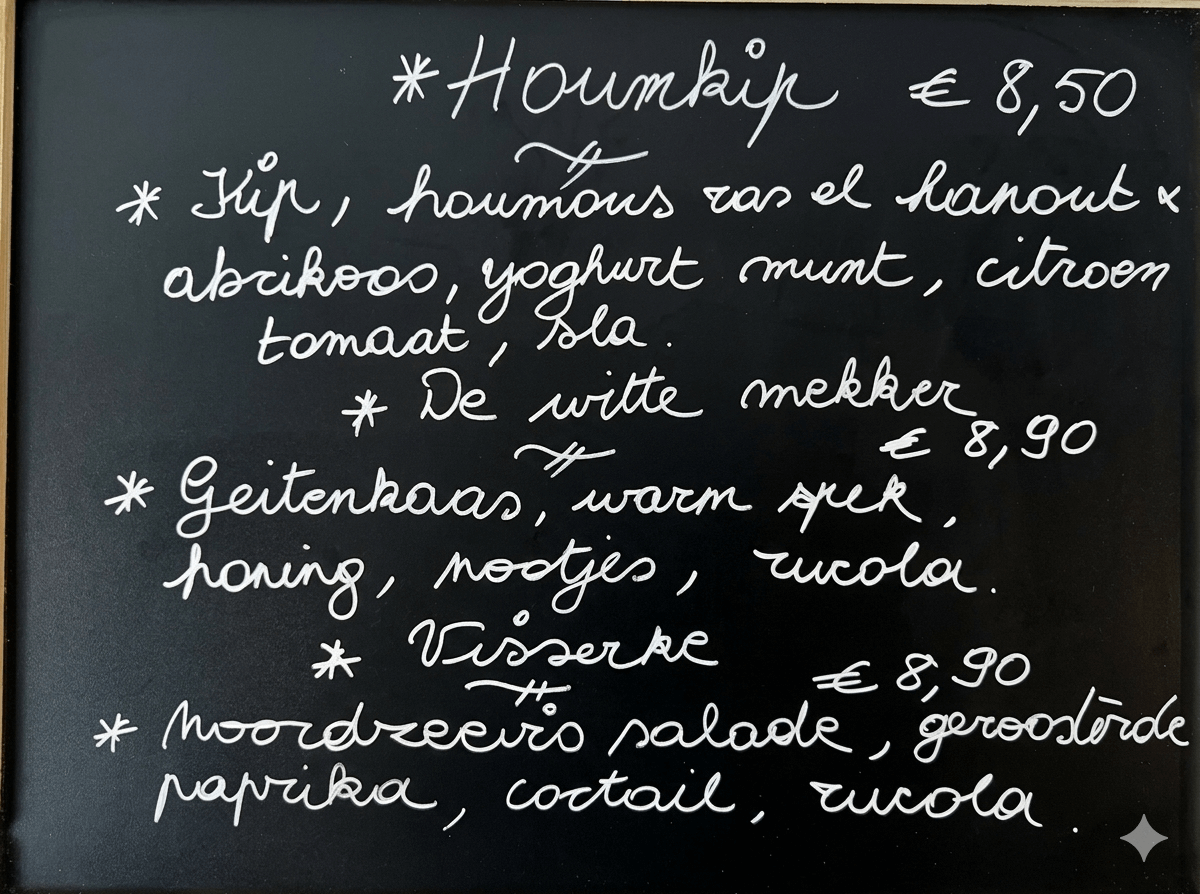 * Houmkip € 8,50
* Kip, houmous ras el hanout &
abrikoos, yoghurt munt, citroen
tomaat, sla.
* De witte mekker
€ 8,90
* Geitenkaas, warm spek,
honing, nootjes, rucola.
* Visserke
€ 8,90
* Noordzeevis salade, geroosterde
paprika, coctail, rucola.